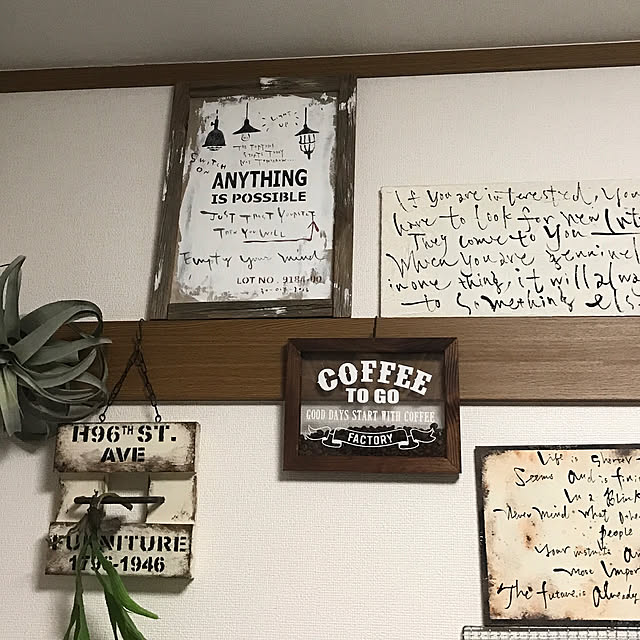 LIGHT
UP
SWITCH
ON
ANYTHING
IS POSSIBLE
JUST TRUST YOURSELF
THEN YOU WILL
Empty your mind
LOT NO. 9184-00
If you are interested, you
have to look for new
They come to you
When you are
in one thing, it will
to something
COFFEE
TO GO
GOOD DAYS START WITH COFFEE
FACTORY
H96TH ST.
AVE
FURNITURE
1796-1946
Life is short
Seems and is
In a Blink
Never mind what
people
your
most Impor
The future is already